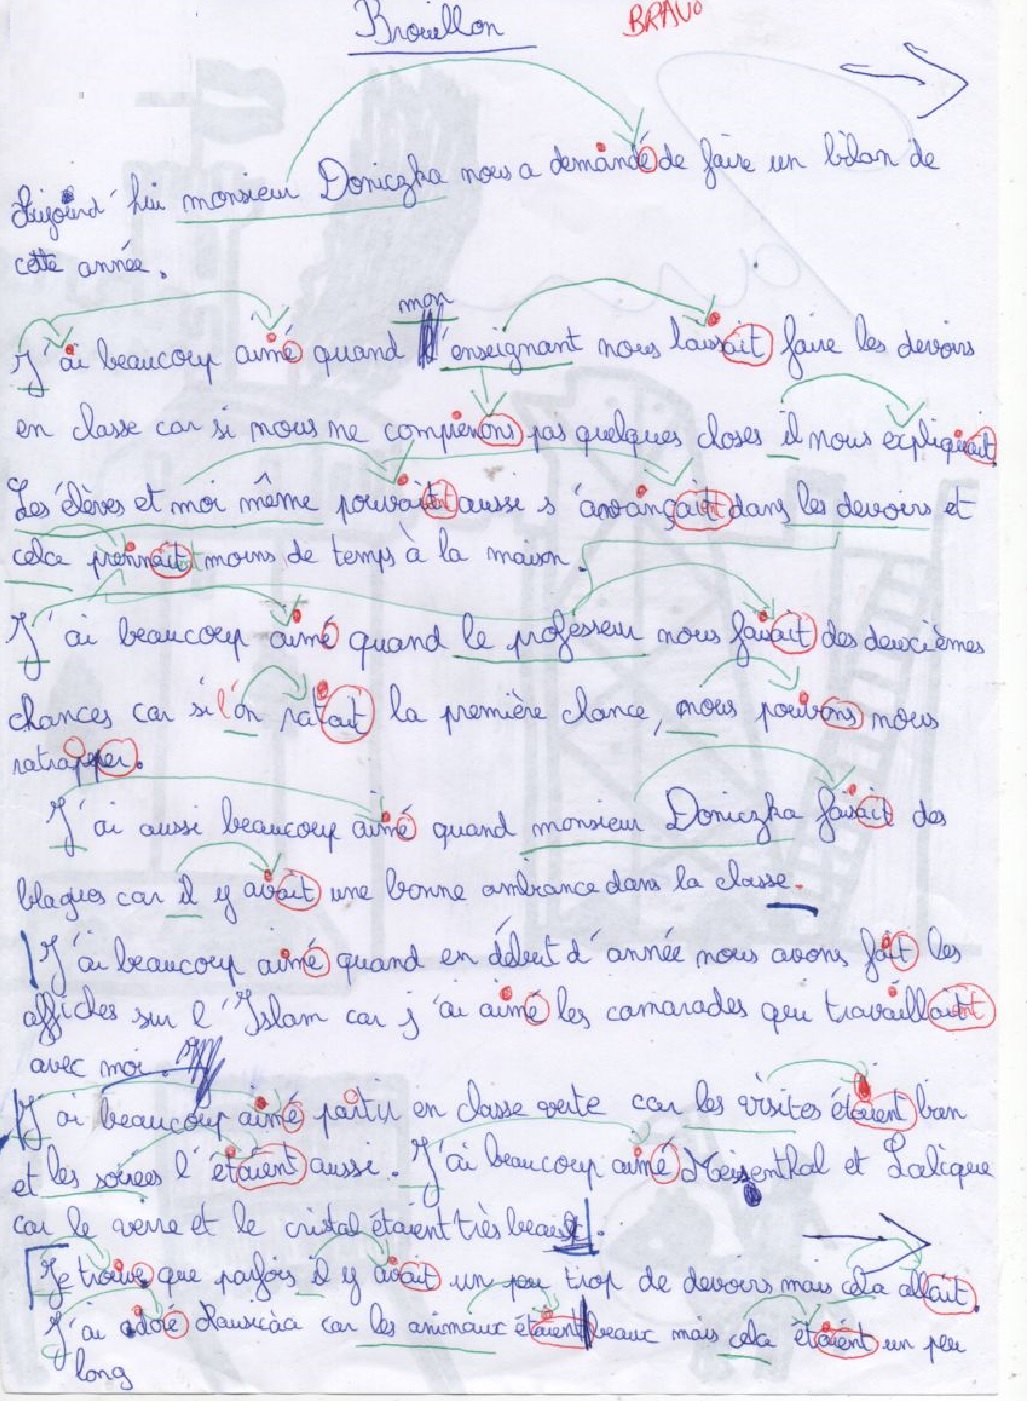 Brouillon BRAVO
Aujourd'hui monsieur Doniczka nous a demandé de faire un bilan de
cette année.
mon
J'ai beaucoup aimé quand l'enseignant nous laissait faire les devoirs
en classe car si nous ne comprenons pas quelques choses il nous expliquait
Les élèves et moi même pouvait aussi s'avançait dans les devoirs et
cela prennait moins de temps à la maison.
J'ai beaucoup aimé quand le professeur nous faisait des deuxièmes
chances car si l'on ratait la première chance, nous pouvons nous
ratrapper.
J'ai aussi beaucoup aimé quand monsieur Doniczka faisait des
blagues car il y avait une bonne ambiance dans la classe.
J'ai beaucoup aimé quand en début d'année nous avons fait les
affiches sur l'Islam car j'ai aimé les camarades qui travaillaient
avec moi.
J'ai beaucoup aimé partir en classe verte car les visites étaient bien
et les soirées l'étaient aussi. J'ai beaucoup aimé Meisenthal et Lalique
car le verre et le cristal étaient très beau.
Je trouve que parfois il y avait un peu trop de devoirs mais cela allait.
J'ai adoré Nausicàa car les animaux étaient beaux mais cela étaient un peu
long